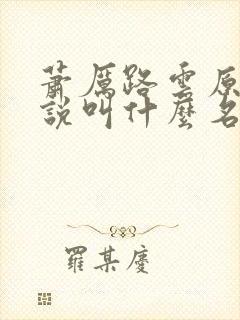 蕭厲路雲原
說叫什麼名
羅某慶